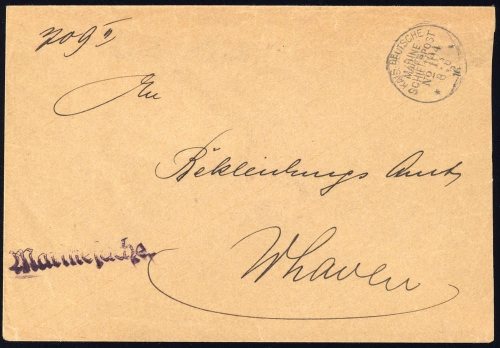 709 II
KAIS. DEUTSCHE
MARINE
SCHIFFSPOST
No
An
Bekleidungs Amt
Marinesache.
Whaven